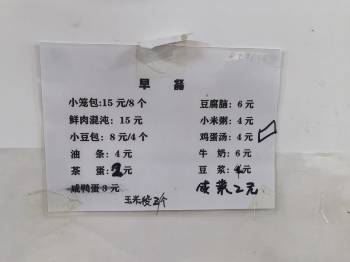 早 餐
小笼包:15 元/8 个
鲜肉混沌:15 元
小豆包:8 元/4个
油 条:4元
茶 蛋:2元
咸鸭蛋3元
豆腐脑:6元
小米粥:4元
鸡蛋汤:4元
牛 奶:6元
豆 浆:4元
咸菜2元